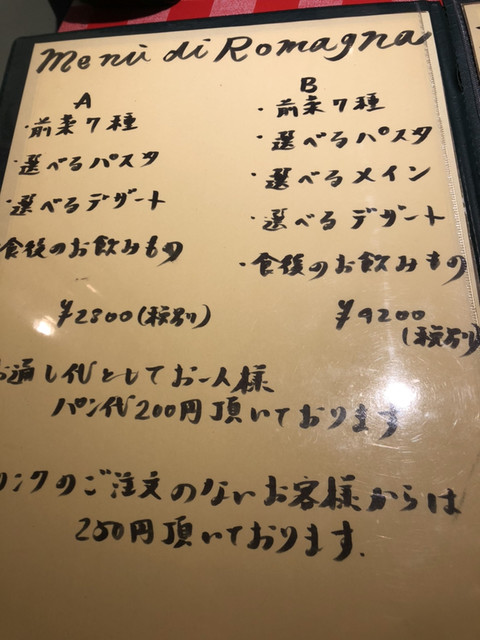 Menù di Romagna
A
・前菜7種
・選べるパスタ
・選べるデザート
食後のお飲みもの
¥2800(税別)
B
・前菜7種
・選べるパスタ
・選べるメイン
・選べるデザート
・食後のお飲みもの
¥4200
(税別)
お通し代としてお一人様
パン代200円頂いております
リンクのご注文のないお客様からは
250円頂いております.